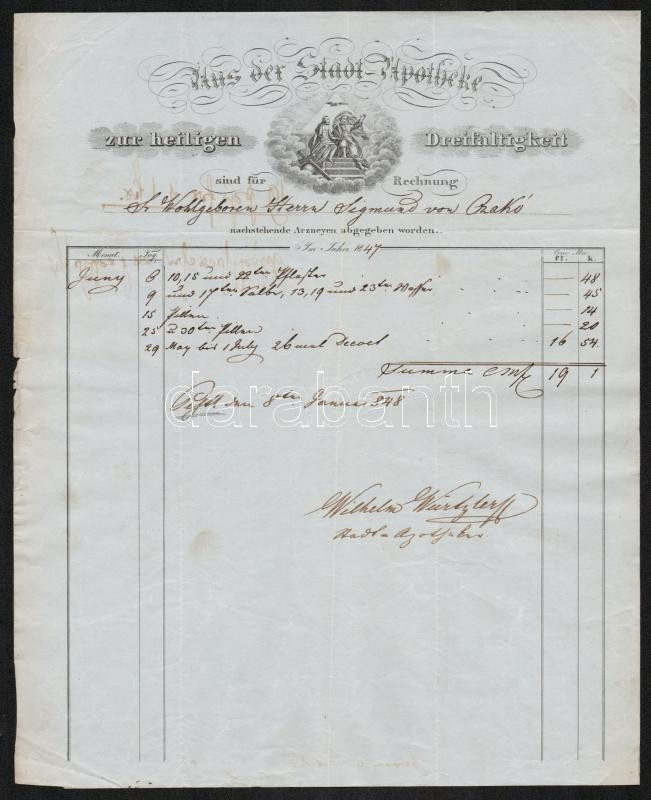 Aus der Stadt-Apotheke
zur heiligen Dreifaltigkeit
sind für Rechnung
Sr Wohlgeboren Herrn Sigmund von Czakó
nachstehende Arzneyen abgegeben worden.
Im Jahre 1847
Monat. Tag. Conv. Mze.
fl. k.
Juny 6 10, 15 und 22ten Pflaster — 48
9 und 17ten Salbe, 13, 19 und 23ten Wasser — 45
15 Pillen — 14
25 u 30ten Pillen — 20
29 May bis 1 July 26 mal Decoct 16 54
Summa CMz 19 1
Pesth den 8ten Januar 848
Wilhelm Würtzler
Stadt Apotheker
darabanth